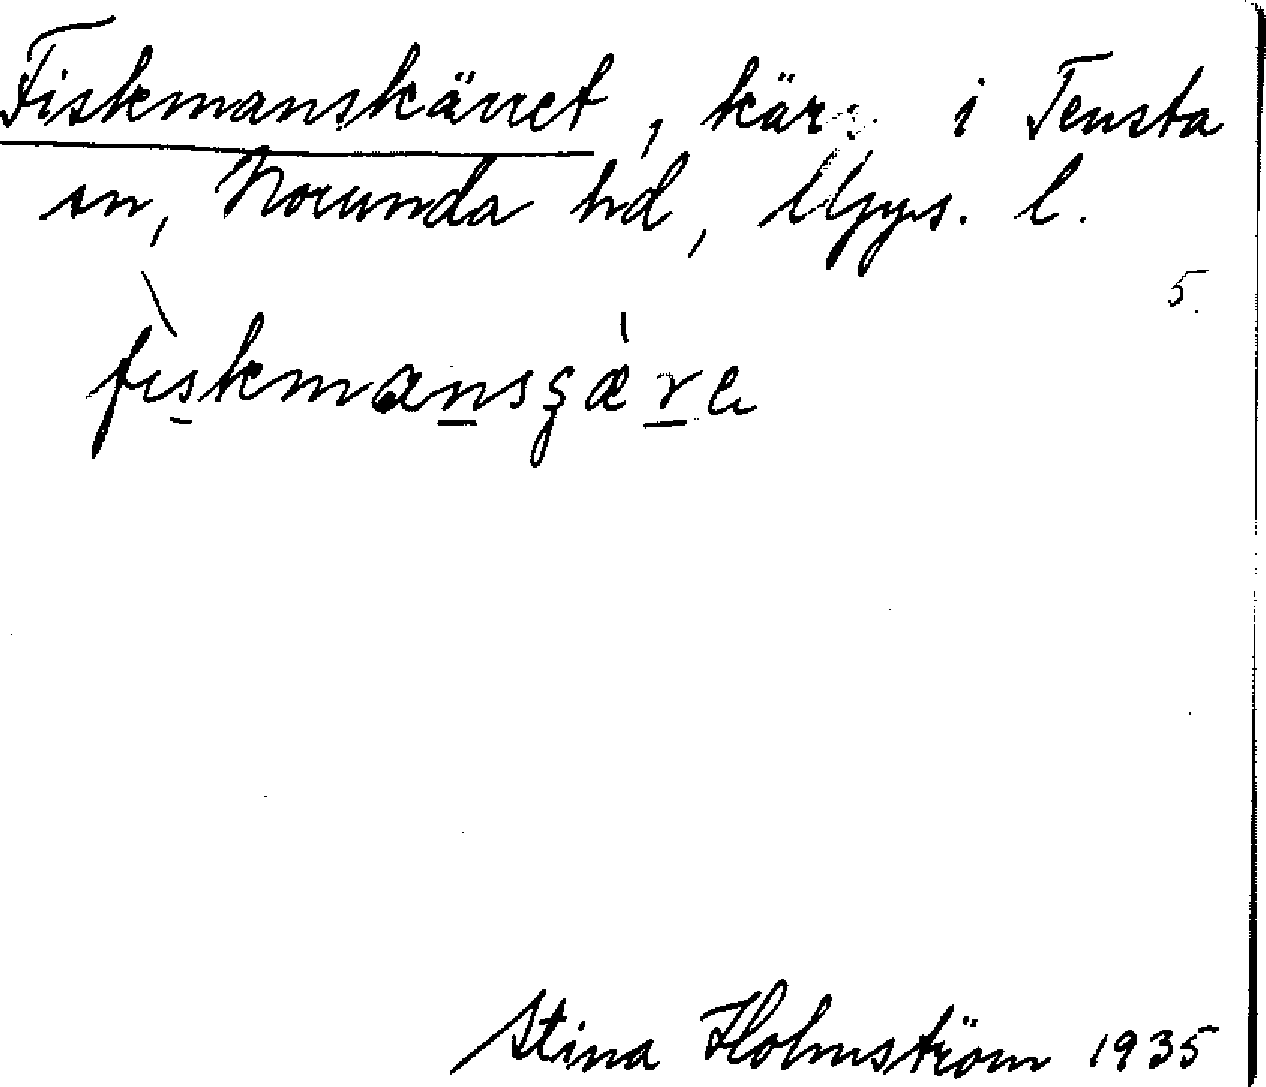 Fiskmanskärret, kärr i Tensta
sn, Norunda hd, Upps. l.
5.
fiskmansgære
Stina Holmström 1935